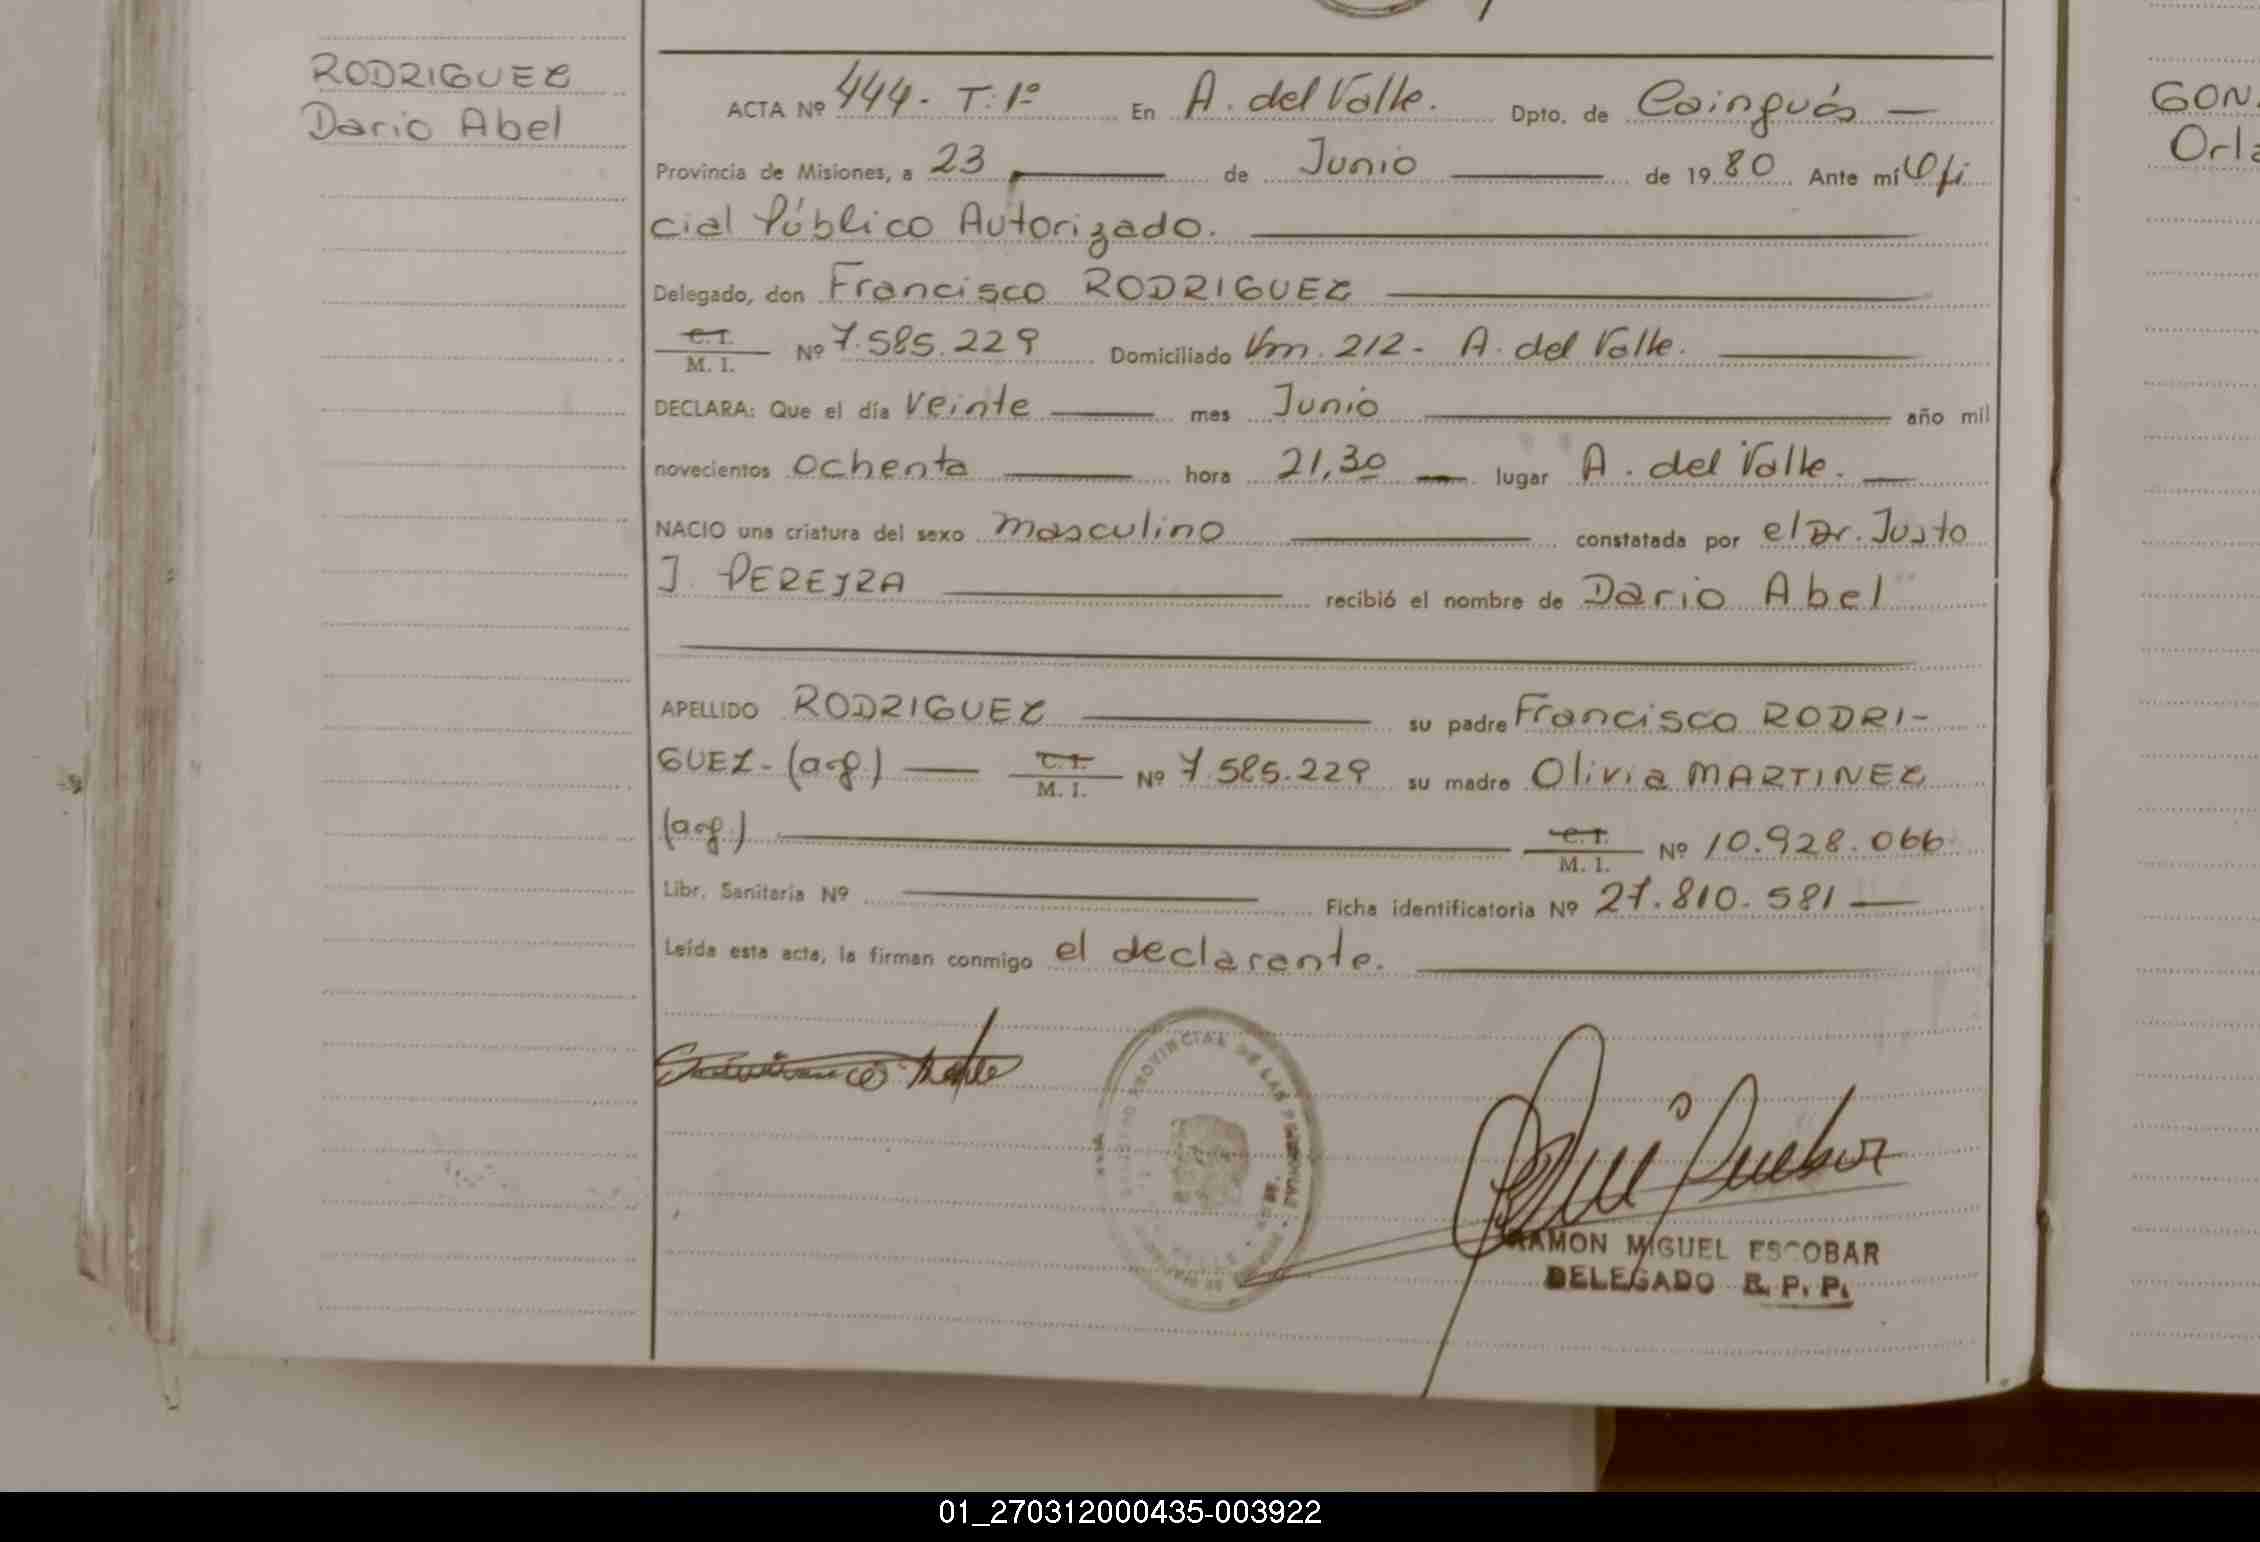 RODRIGUEZ
Dario Abel
ACTA Nº 444- T: 1º En A. del Valle. Dpto. de Cainguás —
Provincia de Misiones, a 23 de Junio de 1980 Ante mí Ofi
cial Público Autorizado.
Delegado, don Francisco RODRIGUEZ
C.I. / M. I. Nº 7.585.229 Domiciliado Km. 212- A. del Valle.
DECLARA: Que el día veinte mes Junio año mil
novecientos ochenta hora 21,30 lugar A. del Valle.
NACIO una criatura del sexo masculino constatada por el Dr. Justo
J. PEREYRA recibió el nombre de Dario Abel
APELLIDO RODRIGUEZ su padre Francisco RODRI-
GUEZ- (arg.) C.I. / M. I. Nº 7.585.229 su madre Olivia MARTINEZ
(arg.) C.I. / M. I. Nº 10.928.066
Libr. Sanitaria Nº Ficha identificatoria Nº 27.810.581
Leída esta acta, la firman conmigo el declarante.
PROVINCIAL DE LAS
RAMON MIGUEL ESCOBAR
DELEGADO R. P. P.
GON
Orla
01_270312000435-003922